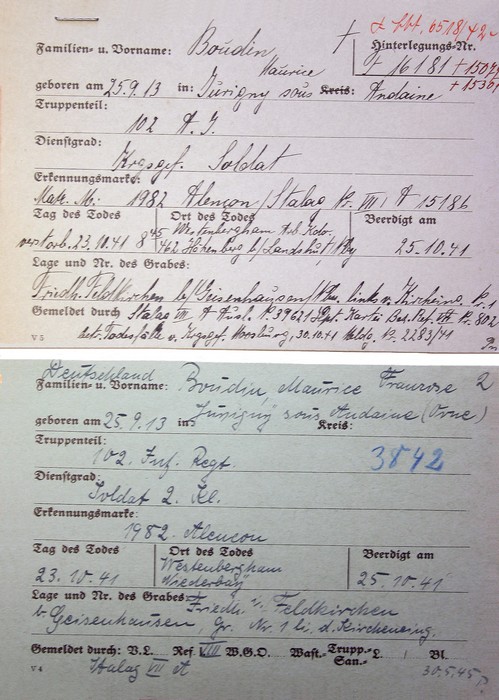 + Abt. 6518/42
Familien- u. Vorname: Boudin, +
Maurice
Hinterlegungs-Nr.
+ 16181 + 1507
+ 1536
geboren am 25.9.13 in: Juvigny sous Kreis: Andaine
Truppenteil:
102 A.I.
Dienstgrad:
Krgsgef. Soldat
Erkennungsmarke:
Mle. 1982 Alençon / Stalag VII A 15186
Tag des Todes Ort des Todes Beerdigt am
verstorb. 23.10.41 8 45 Westenbergham Arb. Kdo.
462 Hohenberg b/ Landshut/ 25.10.41
Lage und Nr. des Grabes:
Friedh. Feldkirchen b/ Geisenhausen links v. Kircheing.
Gemeldet durch Stalag VII A 39621 Karte VII 802
Todesfälle v. Krgsgef. 30.10.41 Meldg. 2283/41
V 5
Deutschland
Familien- u. Vorname: Boudin, Maurice Franzose 2
geboren am 25.9.13 in Juvigny sous Andaine (Orne)
Kreis:
Truppenteil:
102. Inf. Regt. 3842
Dienstgrad:
Soldat 2. Kl.
Erkennungsmarke:
1982. Alencon
Tag des Todes Ort des Todes Beerdigt am
Westenbergham
23.10.41 Niederbay 25.10.41
Lage und Nr. des Grabes: Friedh. v. Feldkirchen
b. Geisenhausen, Gr. Nr. 1 li. d. Kircheneing.
Gemeldet durch: V.L. Ref. VIII W.G.O. Wast.- Trupp.- L. Bl.
San.-
V 4 Stalag VII A 30.5.45